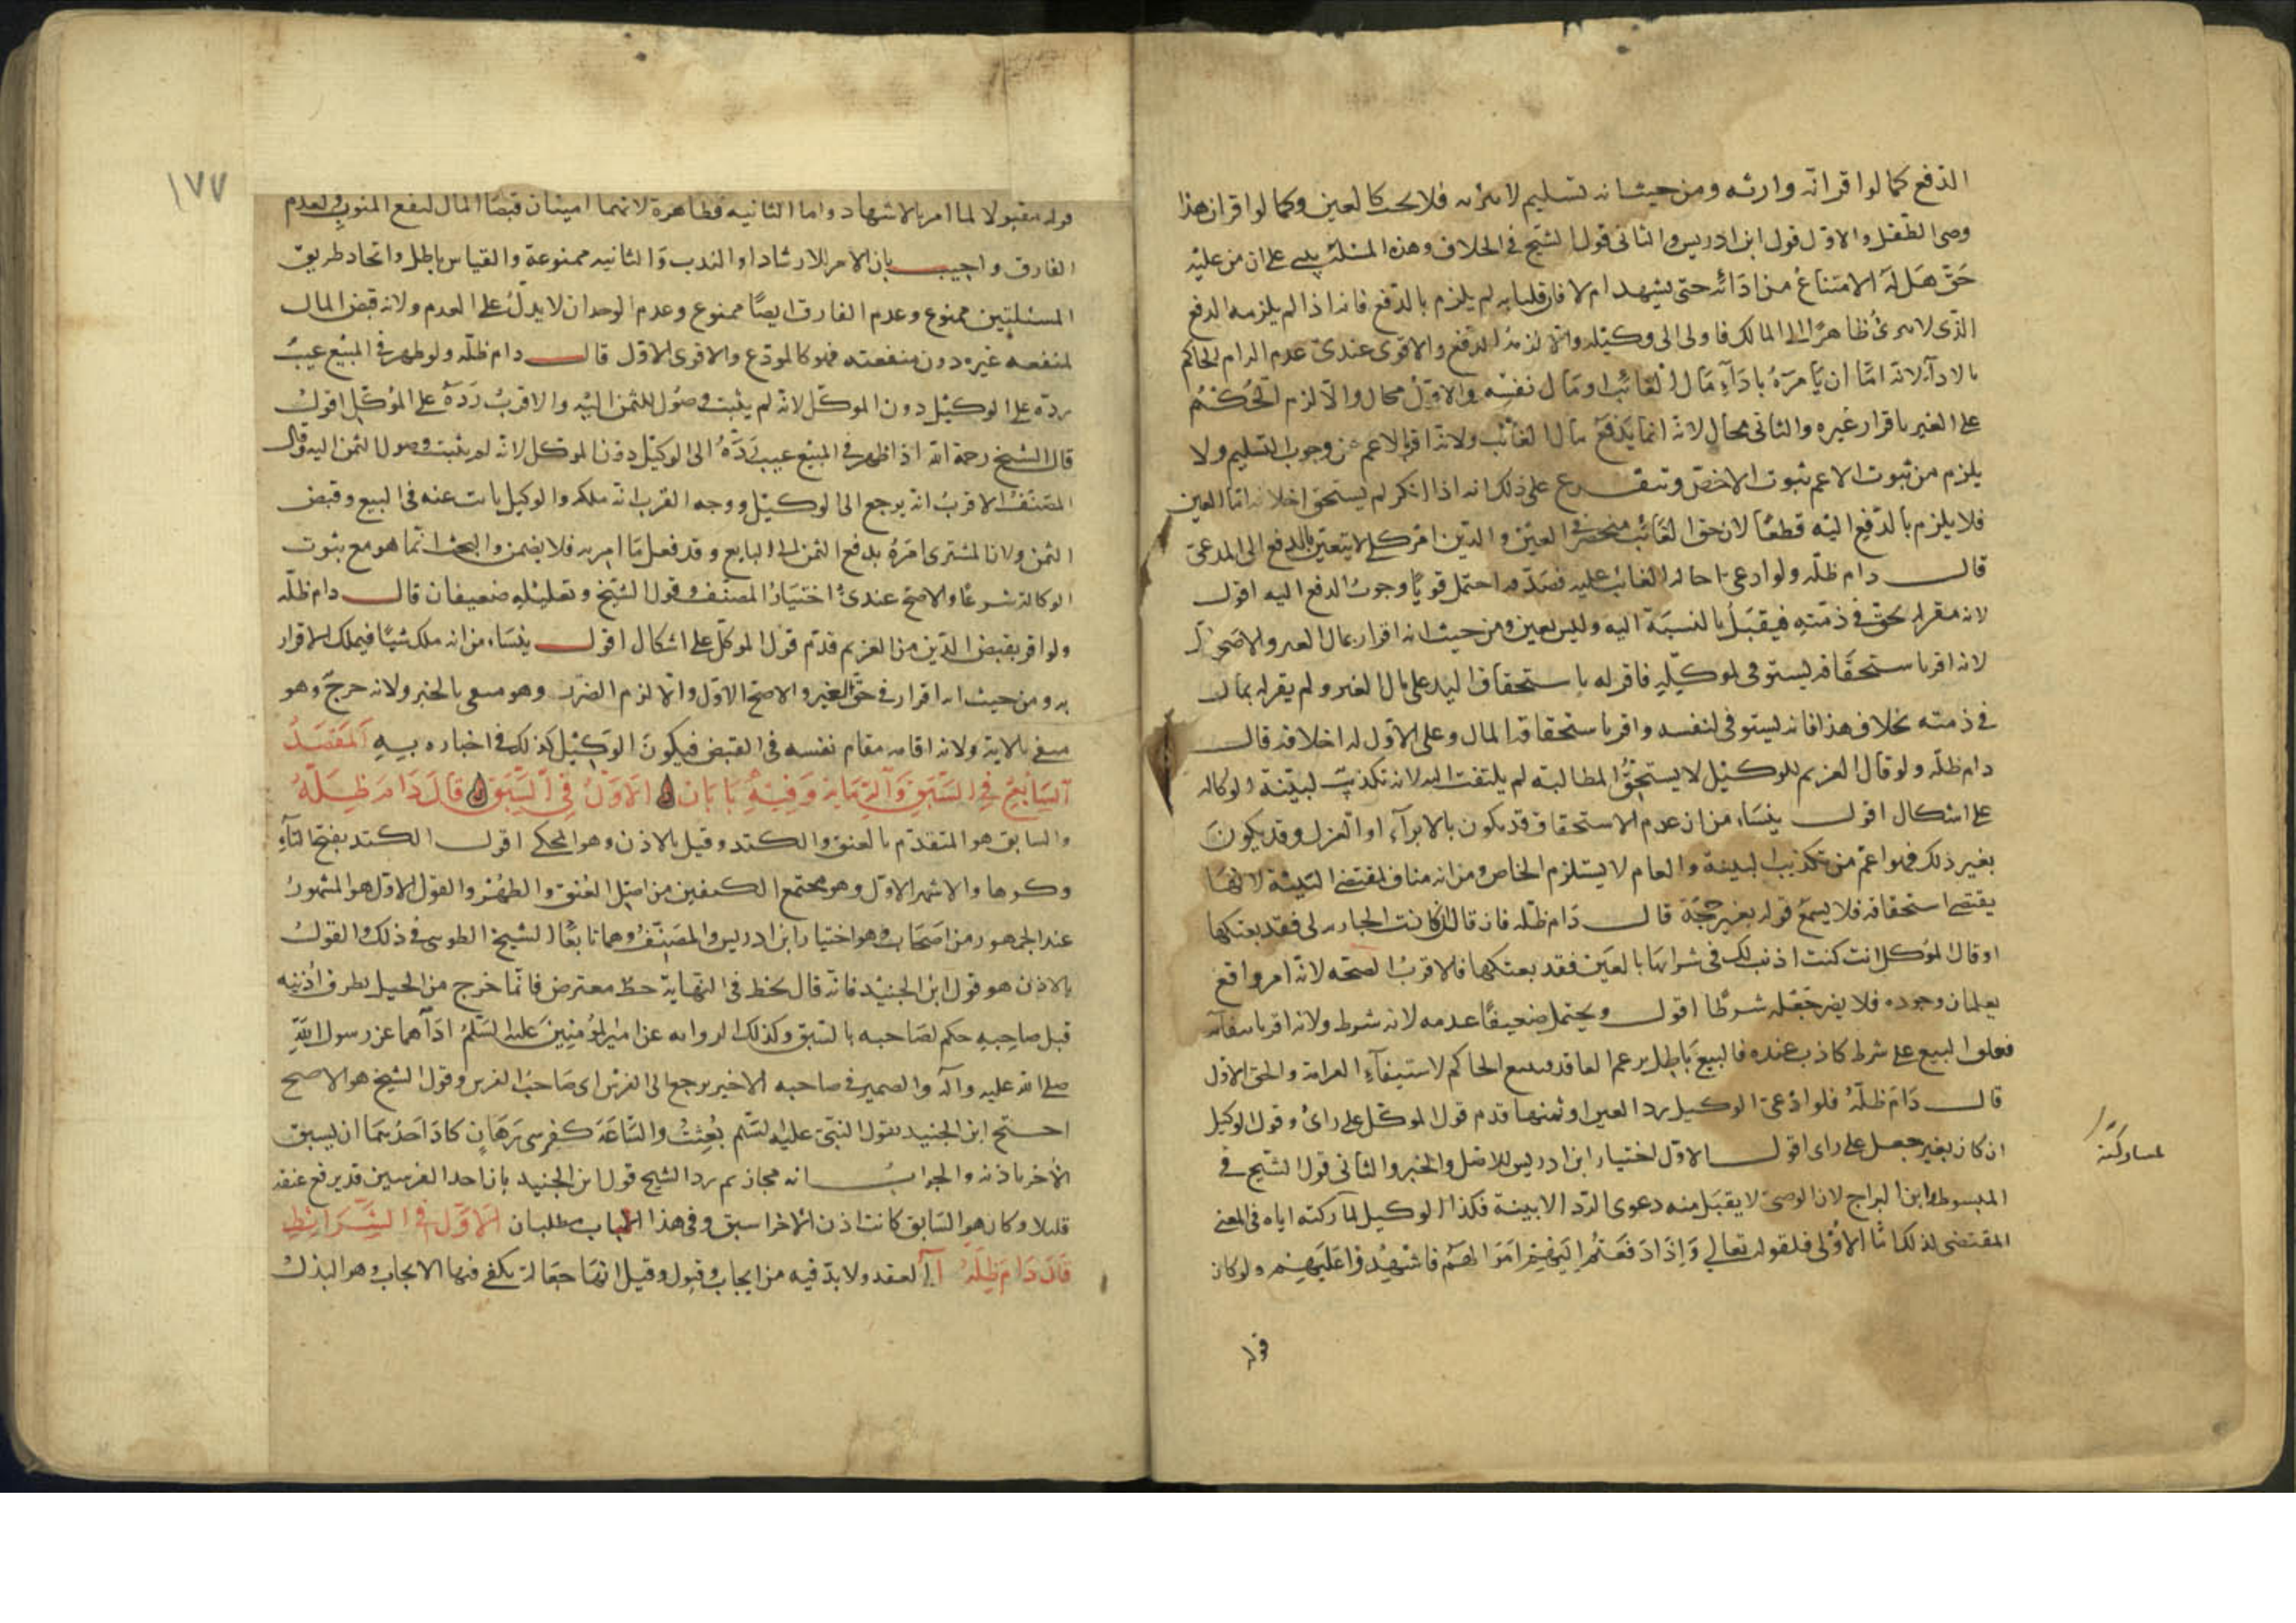 الدفع كما لو اقر انه وارثه ومن حيث انه تسليم لا يبرئه فلا يجب كالعين وكما لو اقر ان هذا
وصي الطفل والاول قول ابن ادريس والثاني قول الشيخ في الخلاف وهذه المسئلة على ان من عليه
حق هل له الامتناع من ادائه حتى يشهد ام لا فان قلنا به لم يلزم بالدفع فانه اذا لم يلزمه الدفع
الذي لا يبرئ ظاهرا الى المالك فاولى الى وكيله والا لزمه الدفع والاقوى عندي عدم الزام الحاكم
بالاداء لانه اما ان يامره باداء مال الغائب او مال نفسه والاول محال والا لزم الحكم
على الغير باقرار غيره والثاني محال لانه انما يدفع مال الغائب ولانه اقر بالاعم من وجوب التسليم ولا
يلزم من ثبوت الاعم ثبوت الاخص ويتفرع على ذلك انه اذا انكر لم يستحق احلافه اما العين
فلا يلزم بالدفع اليه قطعا لان حق الغائب منحصر في العين والدين امر كلي لا يتعين بالدفع الى المدعي
قال دام ظله ولو ادعى احالة الغائب عليه فصدقه احتمل قويا وجوب الدفع اليه اقول
لانه مقر له بحق في ذمته فيقبل بالنسبة اليه وليس بعين ومن حيث انه اقرار بمال الغير والاصح
لانه اقر باستحقاقه ليستوفى لموكله فاقر له باستحقاق اليد على مال الغير ولم يقر له بمال
في ذمته بخلاف هذا فانه ليستوفى لنفسه واقر باستحقاقه المال وعلى الاول له احلافه قال
دام ظله ولو قال الغريم للوكيل لا يستحق المطالبة لم يلتفت اليه لانه تكذيب لبينة الوكالة
على اشكال اقول ينشاء من ان عدم الاستحقاق قد يكون بالابراء او العزل وقد يكون
بغير ذلك فهو اعم من تكذيب البينة والعام لا يستلزم الخاص ومن انه مناف لمقتضى البينة لانها
يقتضي استحقاقه فلا يسمع قوله بغير حجة قال دام ظله فان قال ان كانت الجارية لي فقد بعتكها
او قال الموكل ان كنت اذنت لك في شرائها بالعين فقد بعتكها فالاقرب الصحة لانه امر واقع
يعلمان وجوده فلا يضر جعله شرطا اقول ويحتمل ضعيفا عدمه لانه شرط ولانه اقر بانتفائه
فعلق البيع على شرط كاذب عنده فالبيع باطل بزعم العاقد فيبيع الحاكم لاستيفاء الغرامة والحق الاول
قال دام ظله فلو ادعى الوكيل رد العين او ثمنها قدم قول الموكل على راي وقول الوكيل
ان كان بغير جعل على راي اقول الاول اختيار ابن ادريس للاصل والخبر والثاني قول الشيخ في
المبسوط وابن البراج لان الوصي لا يقبل منه دعوى الرد الا ببينة فكذا الوكيل لمشاركته اياه في المعنى
المقتضي لذلك اما الاولى فلقوله تعالى واذا دفعتم اليهم اموالهم فاشهدوا عليهم ولو كان
لمشاركته
قوله
١٧٧
قوله مقبولا لما امر بالاشهاد واما الثانية فظاهرة لانهما امينان قبضا المال لنفع المنوب ولعدم
الفارق واجيب بان الامر للارشاد او الندب والثانية ممنوعة والقياس باطل واتحاد طريق
المسئلتين ممنوع وعدم الفارق ايضا ممنوع وعدم الوجدان لا يدل على العدم ولانه قبض المال
لمنفعة غيره دون منفعته فهو كالمودع والاقوى الاول قال دام ظله ولو ظهر في المبيع عيب
رده على الوكيل دون الموكل لانه لم يثبت وصول الثمن اليه والاقرب رده على الموكل اقول
قال الشيخ رحمه الله اذا ظهر في المبيع عيب رده الى الوكيل دون الموكل لانه لم يثبت وصول الثمن اليه وقال
المصنف الاقرب انه يرجع الى الوكيل ووجه القرب انه ملكه والوكيل نائب عنه في البيع وقبض
الثمن ولان المشتري امره بدفع الثمن الى البايع وقد فعل ما امر به فلا يضمن والبحث انما هو مع ثبوت
الوكالة شرعا والاصح عندي اختيار المصنف وقول الشيخ وتعليله ضعيفان قال دام ظله
ولو اقر بقبض الدين من الغريم قدم قول الموكل على اشكال اقول ينشاء من انه ملك شيئا فيملك الاقرار
به ومن حيث انه اقرار في حق الغير والاصح الاول والا لزم الضرر وهو منفي بالخبر ولانه حرج وهو
منفي بالاية ولانه اقامه مقام نفسه في القبض فيكون الوكيل كذلك في اخباره به المقصد
السابع في السبق والرماية وفيه بابان الاول في السبق قال دام ظله
والسابق هو المتقدم بالعنق والكتد وقيل بالاذن وهو المحكي اقول الكتد بفتح التاء
وكسرها والاشهر الاول وهو مجتمع الكتفين من اصل العنق والظهر والقول الاول هو المشهور
عند الجمهور من اصحابنا وهو اختيار ابن ادريس والمصنف وهما تابعا الشيخ الطوسي في ذلك والقول
بالاذن هو قول ابن الجنيد فانه قال يخط في النهاية خط معترض فانما خرج من الخيل بطرف اذنيه
قبل صاحبه حكم لصاحبه بالسبق وكذلك الرواية عن امير المؤمنين عليه السلم اداها عن رسول الله
صلى الله عليه واله والضمير في صاحبه الاخير يرجع الى الفرس اي صاحب الفرس وقول الشيخ هو الاصح
احتج ابن الجنيد بقول النبي عليه السلم بعثت والساعة كفرسي رهان كاد احدهما ان يسبق
الاخر باذنه والجواب انه مجاز ثم رد الشيخ قول ابن الجنيد بان احد الفرسين قد يرفع عنقه
قليلا وكان هو السابق كانت اذن الاخر اسبق وفي هذا الباب مطلبان الاول في الشرائط
قال دام ظله ا العقد ولا بد فيه من ايجاب وقبول وقيل انها جعالة يكفي فيها الايجاب وهو البذل